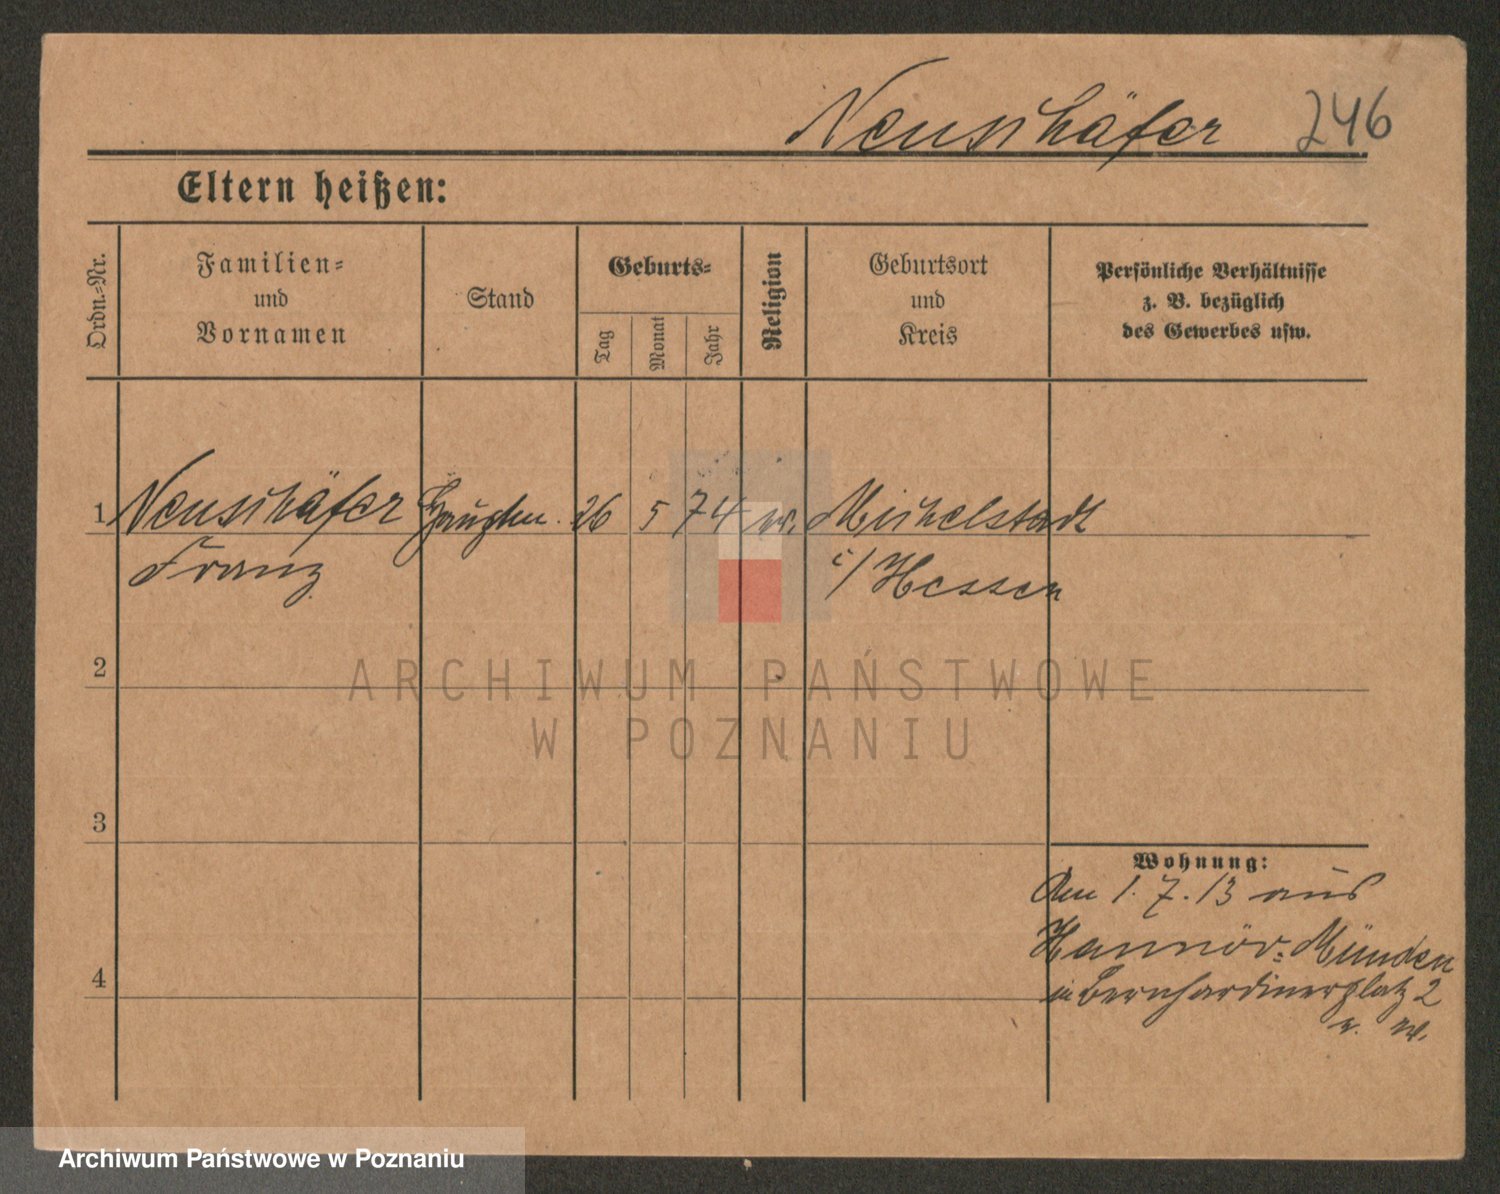 Neuschäfer 246
Eltern heißen:
Ordn.-Nr.
Familien-
und
Vornamen
Stand
Geburts-
Tag
Monat
Jahr
Religion
Geburtsort
und
Kreis
Persönliche Verhältnisse
z. B. bezüglich
des Gewerbes usw.
1 Neuschäfer Hauptm. 26 5 74 ev. Michelstadt
Franz i/Hessen
2
3
4
Wohnung:
Am 1.7.13 aus
Hannöv.-Münden
in Bernhardinerplatz 2
ARCHIWUM PAŃSTWOWE
W POZNANIU
Archiwum Państwowe w Poznaniu